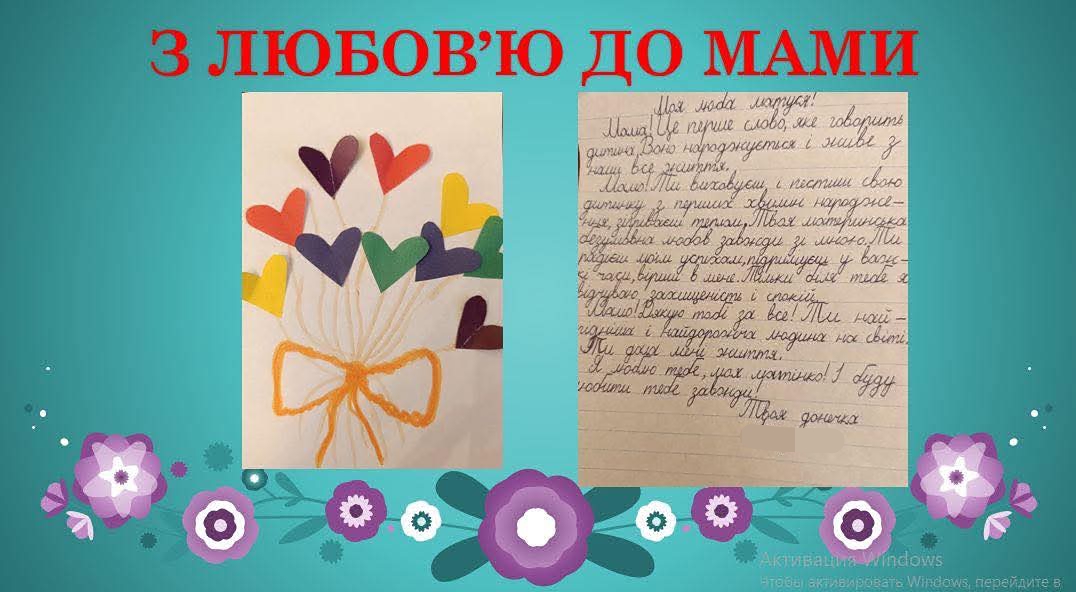 З ЛЮБОВ’Ю ДО МАМИ
Моя люба матуся!
Мама! Це перше слово, яке говорить
дитина. Воно народжується і живе з
нами все життя.
Мамо! Ти виховуєш і пестиш свою
дитинку з перших хвилин народже-
ння, зігріваєш теплом. Твоя материнська
безумовна любов завжди зі мною. Ти
радієш моїм успіхам, підтримуєш у важ-
кі часи, віриш в мене. Тільки біля тебе я
відчуваю захищеність і спокій.
Мамо! Дякую тобі за все! Ти най-
рідніша і найдорожча людина на світі.
Ти дала мені життя.
Я люблю тебе, моя матінко! І буду
любити тебе завжди!
Твоя донечка
Активация Windows
Чтобы активировать Windows, перейдите в